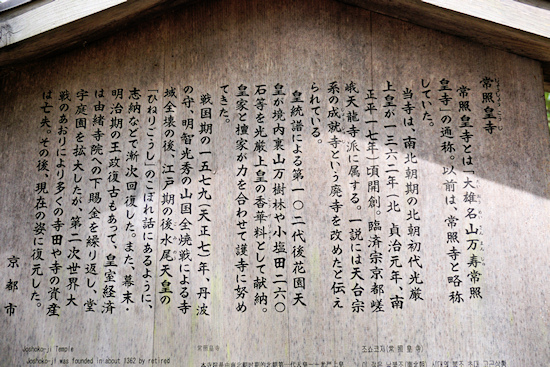 常照皇寺
常照皇寺とは「大雄名山万寿常照
皇寺」の通称。以前は、常照寺と略称
していた。
当寺は、南北朝期の北朝初代光厳
上皇が一三六二年（北 貞治元年、南
正平一七年）頃開創。臨済宗京都嵯
峨天龍寺派に属する。一説には天台宗
系の成就寺という廃寺を改めたと伝え
られている。
皇統譜による第一〇二代後花園天
皇が境内裏山万樹林や小塩田二六〇
石等を光厳上皇の香華料として献納。
皇家と檀家が力を合わせて護寺に努め
てきた。
戦国期の一五七九（天正七）年、丹波
の守、明智光秀の山国全焼戦による寺
域全壊の後、江戸期の後水尾天皇の
「ひねりごうし」のこぼれ話にあるように、
志納などで漸次回復した。また、幕末・
明治期の王政復古もあって、皇室経済
は由緒寺院への下賜金を繰り返し、堂
宇庭園を拡大したが、第二次世界大
戦のあおりにより多くの寺田や寺の資産
は亡失。その後、現在の姿に復元した。
京都市
Joshoko-ji Temple
Joshoko-ji was founded in about 1362 by retired
常照皇寺
조쇼코지(常照皇寺)